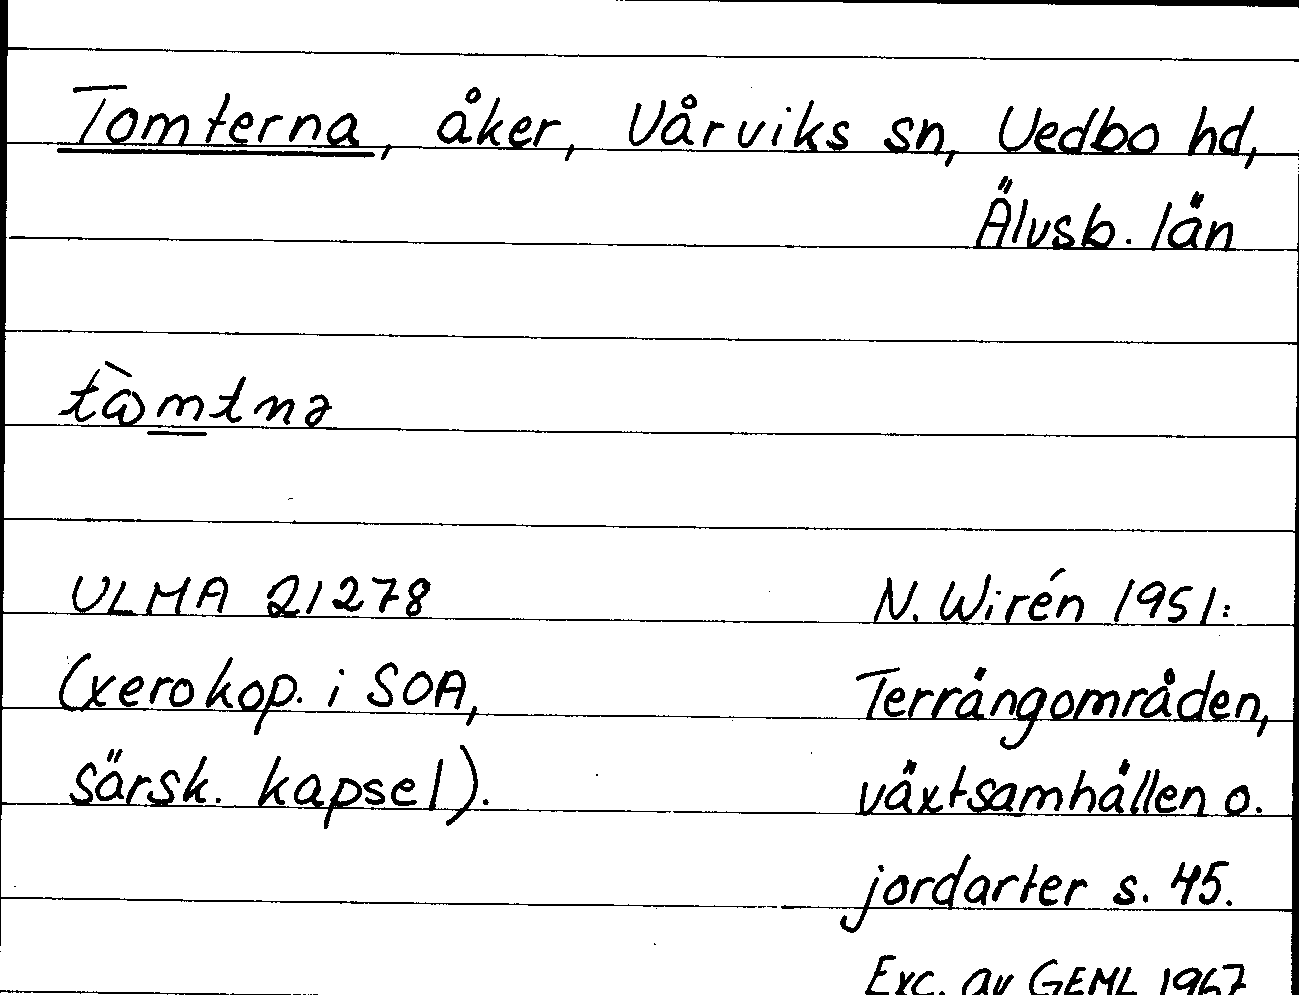 Tomterna, åker, Vårviks sn, Vedbo hd,
Älvsb. län
tò̱mtnə
ULMA 21278
(xerokop. i SOA,
särsk. kapsel).
N. Wirén 1951:
Terrängområden,
växtsamhällen o.
jordarter s. 45.
Exc. av GEML 1967